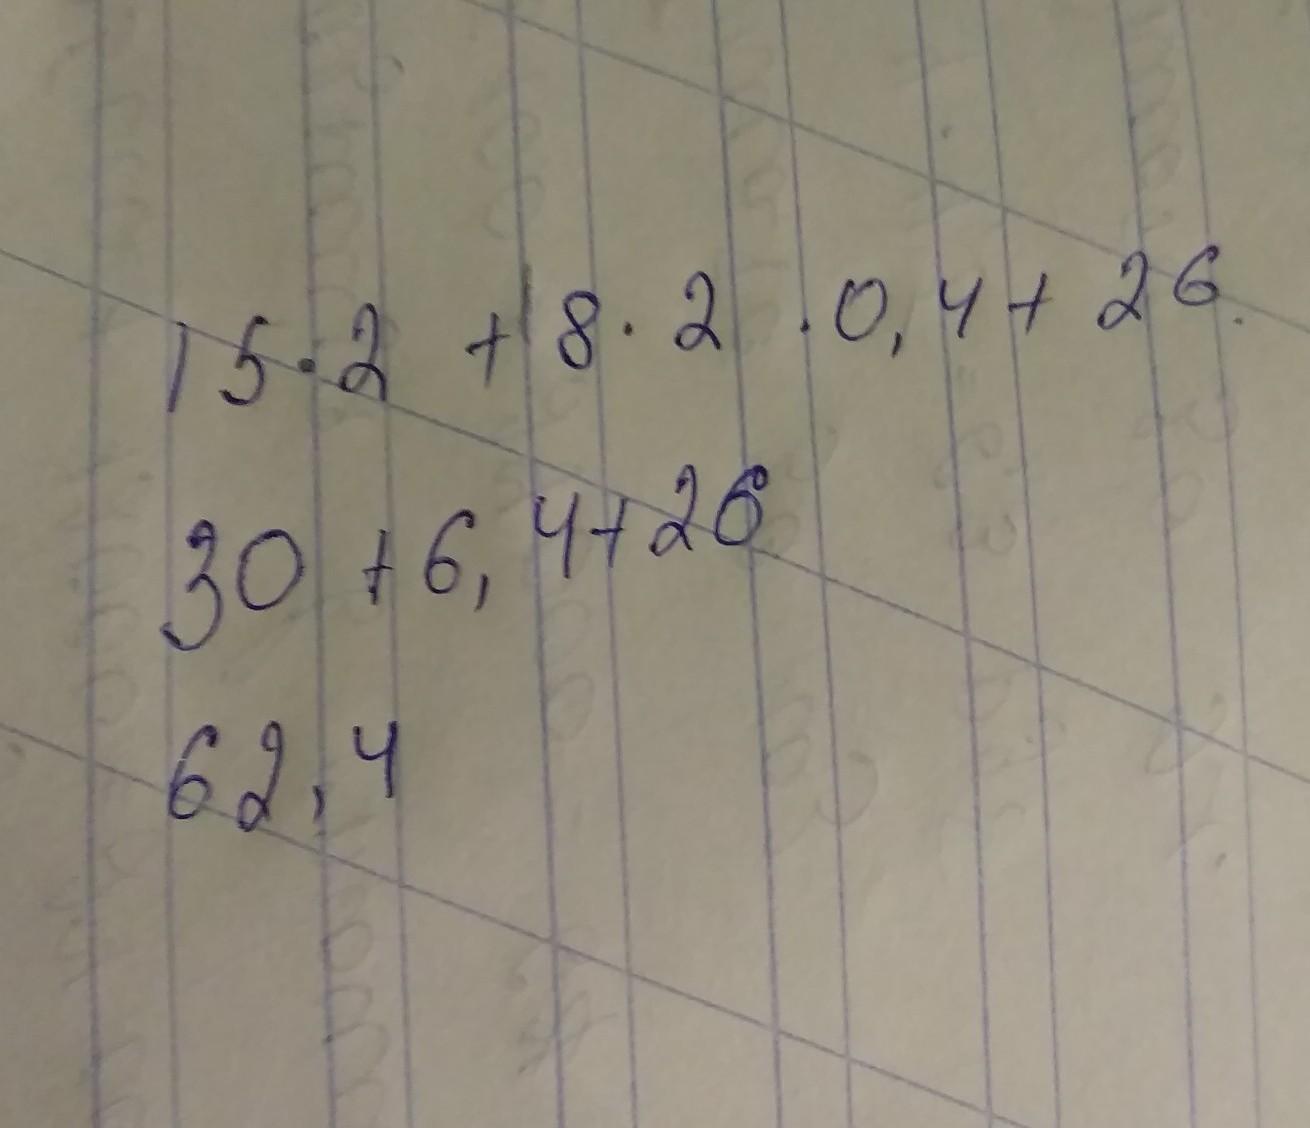 15·2 + 8·2·0,4 + 26.
30 + 6,4 + 26
62,4